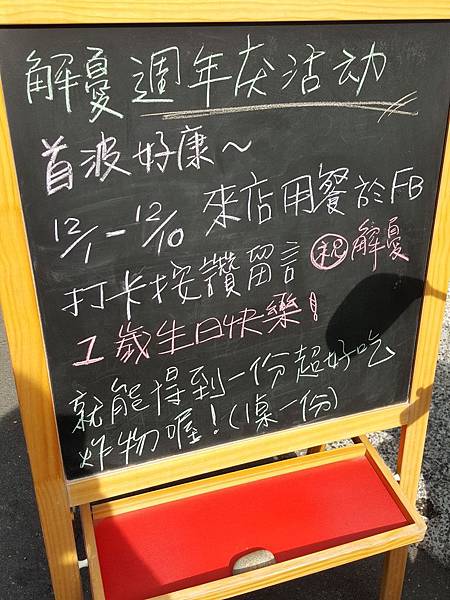 解憂週年庆活动
首波好康~
12/1-12/10 來店用餐於FB
打卡按讚留言 ㊗解憂
1歲生日快樂!
就能得到一份超好吃
炸物喔!(1桌一份)